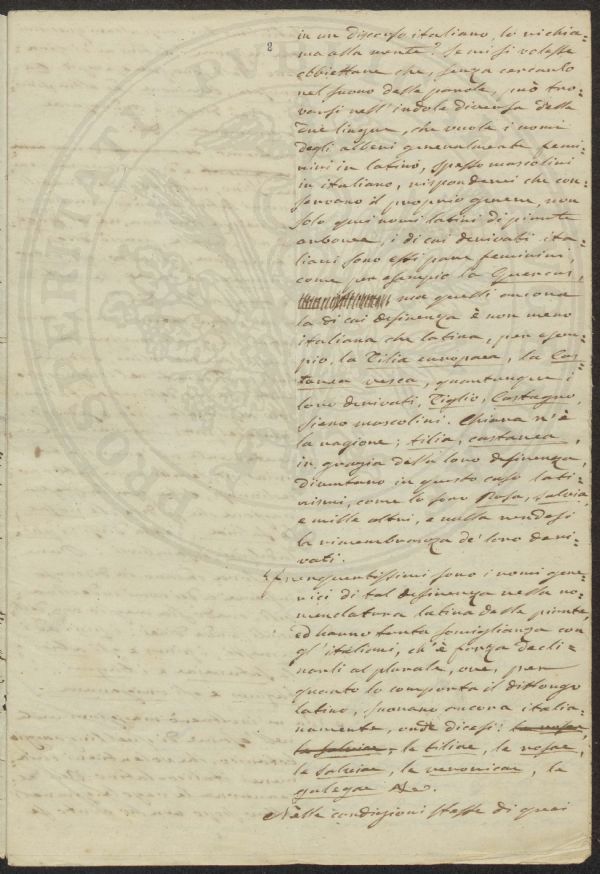 8
in un discorso italiano lo richia=
ma alla mente? Se mi si volesse
obbiettare che, senza cercarlo
nel suono delle parole, può tro=
varsi nell'indole diversa delle
due lingue, che vuole i nomi
degli alberi generalmente femi=
nini in latino, spesso mascolini
in italiano, risponderei che con=
servano il proprio genere, non
solo quei nomi latini di piante
arboree, i di cui derivati ita=
liani sono essi pure feminini,
come per esempio la Quercus,
ma quelli ancora
la di cui desinenza è non meno
italiana che latina, per esem=
pio, la Tilia europaea, la Cas=
tanea vesca, quantunque i
loro derivati, Tiglio, Castagno,
sieno mascolini. Chiara n'è
la ragione; tilia, castanea,
in grazia della loro desinenza,
diventano in questo caso lati=
nismi, come lo son Rosa, salvia,
e mille altri, e nulla rendesi
la rimembranza de' loro deri=
vati.
Frequentissimi sono i nomi gene=
rici di tal desinenza nella no=
menclatura latina delle piante,
ed hanno tanta somiglianza con
gl'italiani, ch'è forza decli=
narli al plurale, ove, per
quanto lo comporta il dittongo
latino, suonano ancora italia=
namente, onde dicesi: la rosae,
la salviae, le tiliae, le rosae,
le salviae, le veronicae, le
galegae &c.
Nelle condizioni stesse di quei